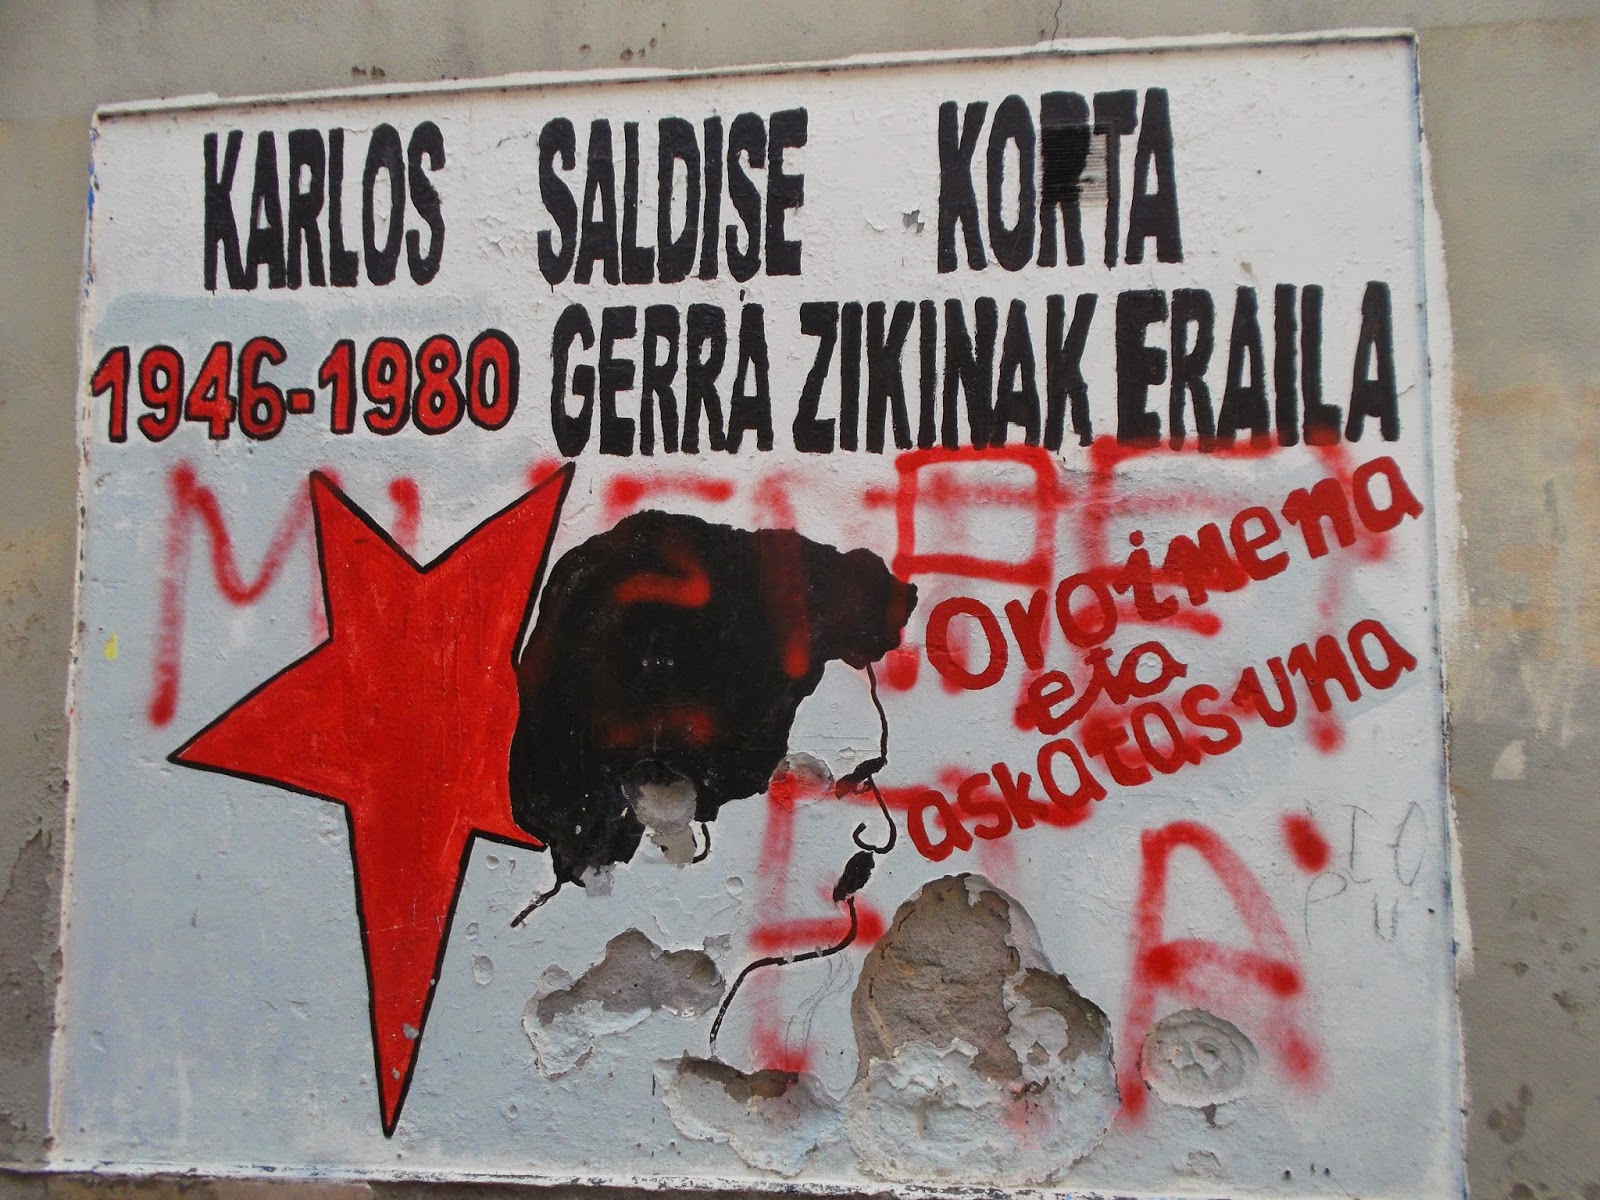 KARLOS SALDISE KORTA
1946-1980 GERRA ZIKINAK ERAILA
Oroimena
eta
askatasuna